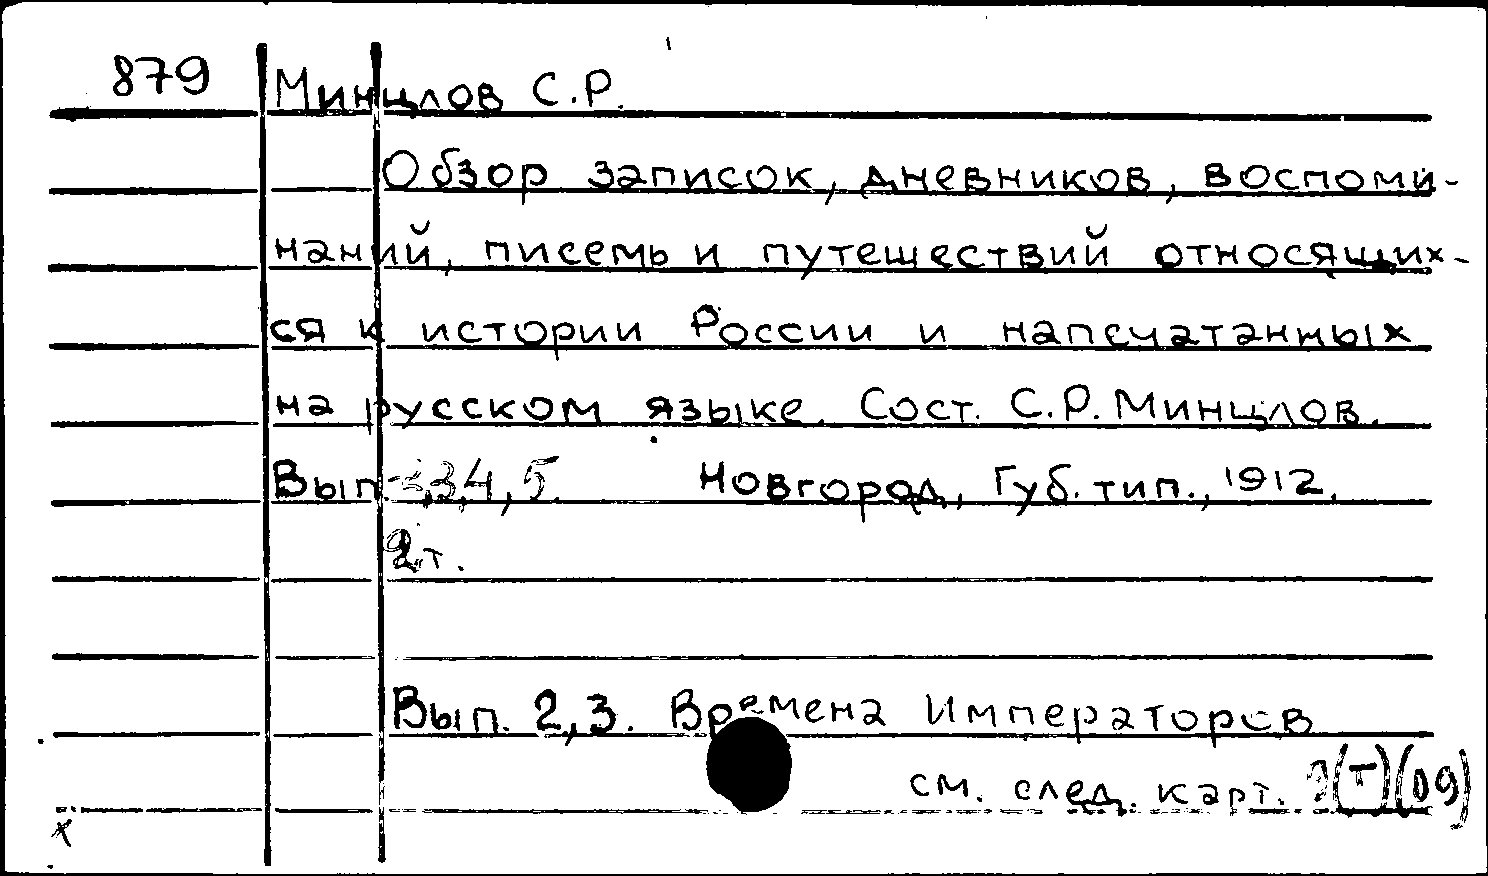 879 Минцлов С.Р.
Обзор записок, дневников, воспоми-
наний, писемь и путешествий относящих-
ся к истории России и напечатанных
на русском языке. Сост. С.Р. Минцлов.
Вып. 3,4,5. Новгород, Губ. тип., 1912.
2т.
Вып. 2,3. Времена Императоров
см. след. карт. (т)(09)
x